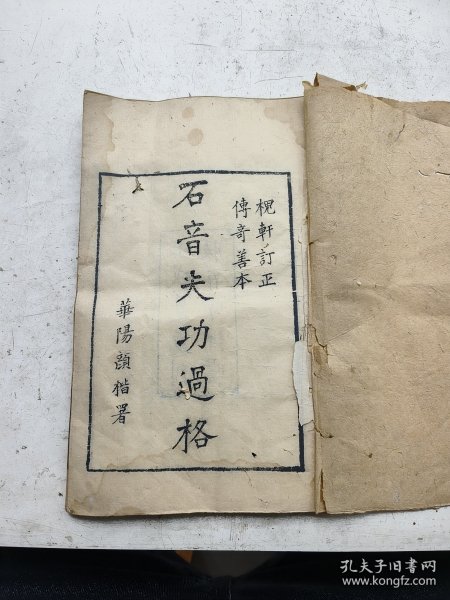 槐軒訂正
傳奇善本
石音夫功過格
華陽顔楷署
孔夫子旧书网
www.kongfz.com